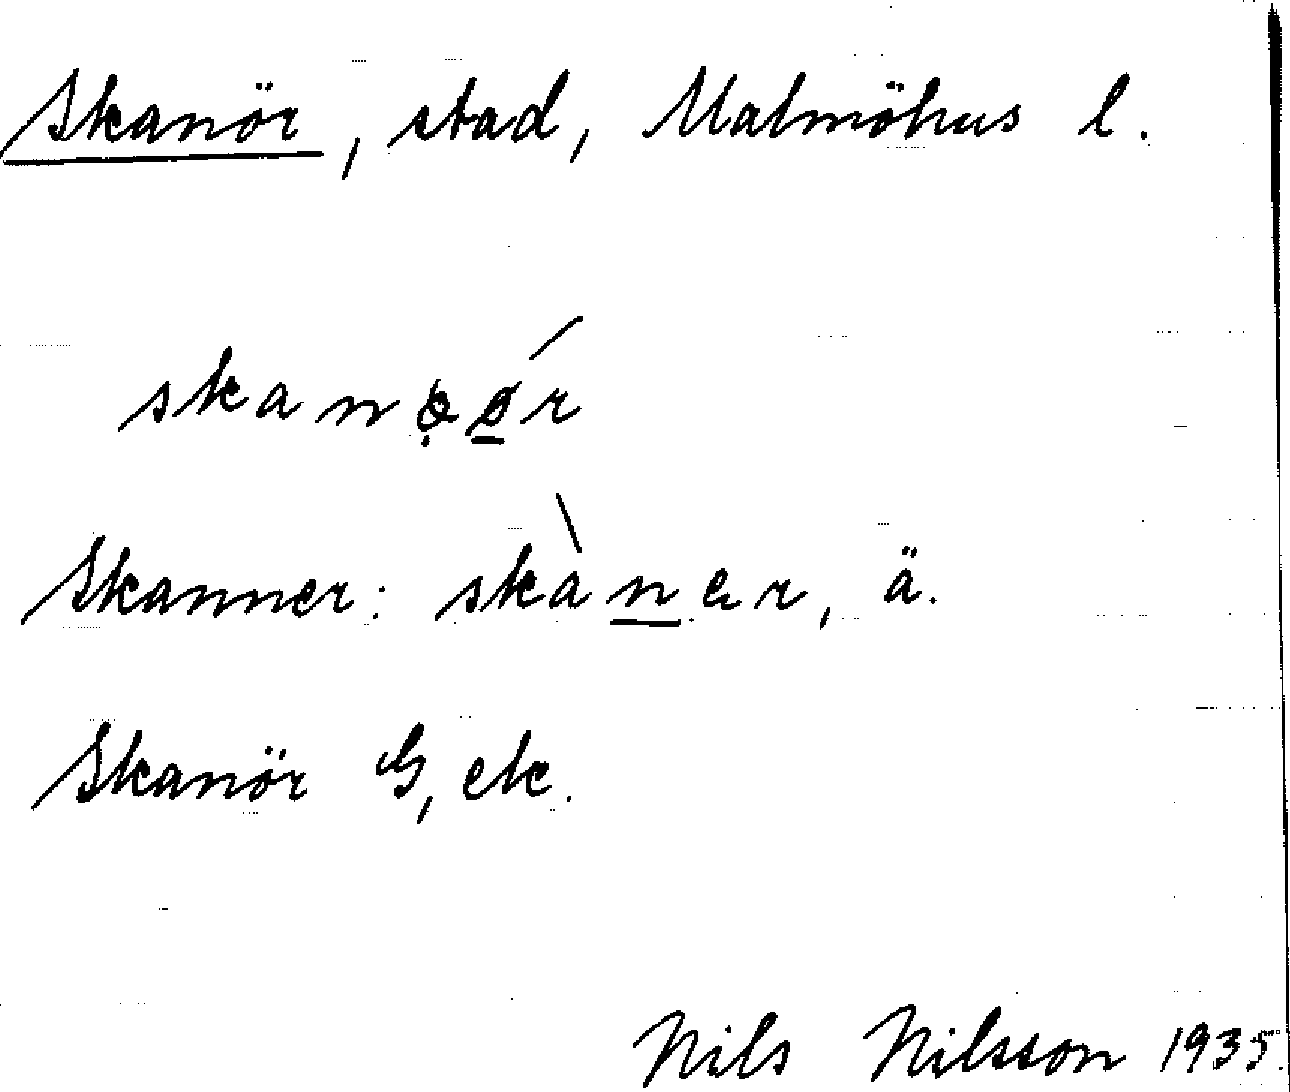 Skanör, stad, Malmöhus l.
skanø̣ǿ̱r
Skanner: skàn̲er, ä.
Skanör G, etc.
Nils Nilsson 1935.